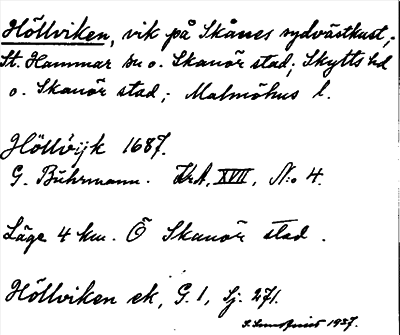 Höllviken, vik på Skånes sydvästkust;
St. Hammar sn o. Skanör stad; Skytts hd
o. Skanör stad; Malmöhus l.
Höllvijk 1687.
G. Buhrmann. KrA, XVII, No 4.
Läge 4 km. Ö Skanör stad.
Höllviken ek, G. 1, Sj. 271.
1937.